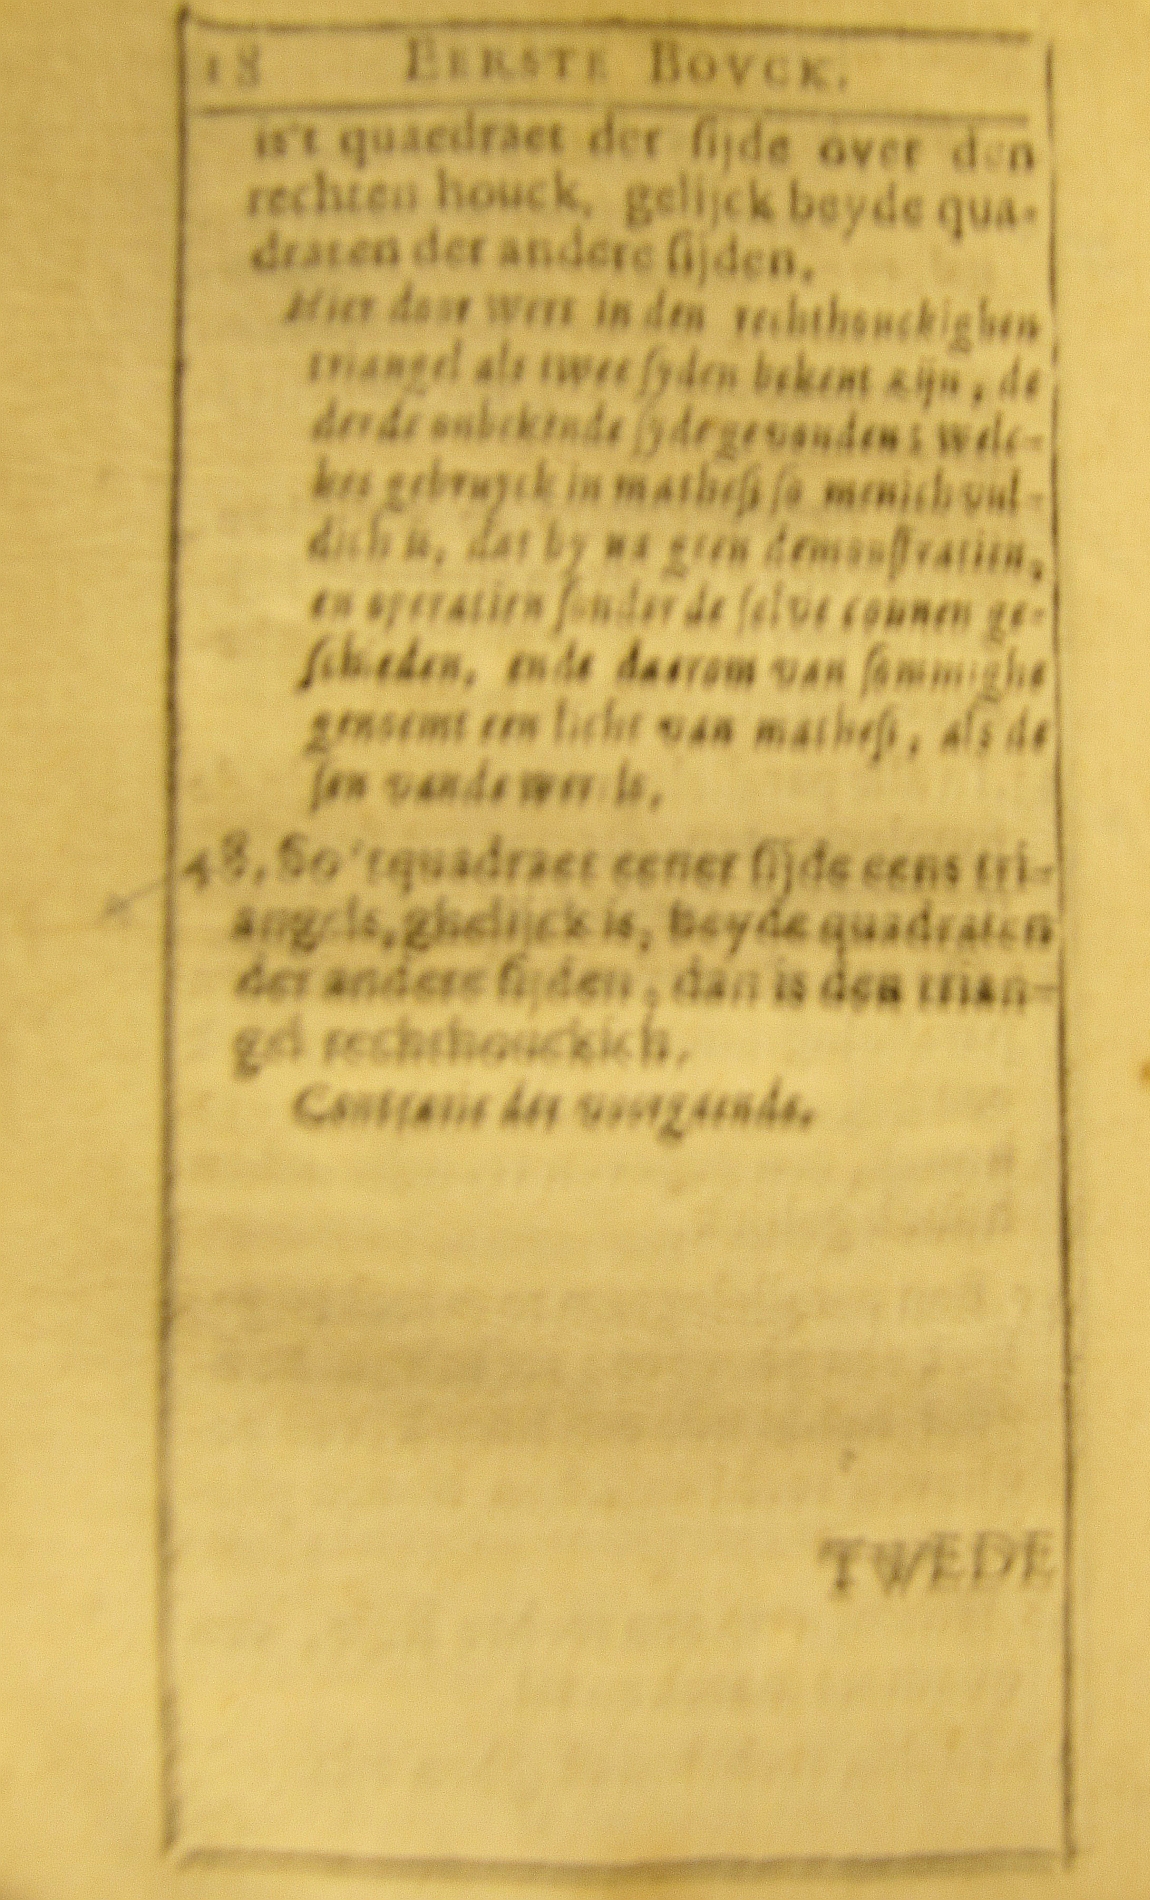 18 EERSTE BOVCK.
is't quaedraet der ſijde over den
rechten houck, gelijck beyde qua-
draten der andere ſijden.
Hier door wert in den rechthouckighen
triangel als twee ſyden bekent zijn, de
derde onbekende ſyde gevonden: welc-
kes gebruyck in matheſi ſo menichvul-
dich is, dat by na geen demonſtratien,
en operatien ſonder de ſelve connen ge-
ſchieden, ende daerom van ſommighe
genoemt een licht van matheſi, als de
ſon vande werelt.
48. So 't quadraet eener ſijde eens tri-
angels, ghelijck is, beyde quadraten
der andere ſijden, dan is den trian-
gel rechthouckich.
Contrarie der voorgaende.
TWEDE